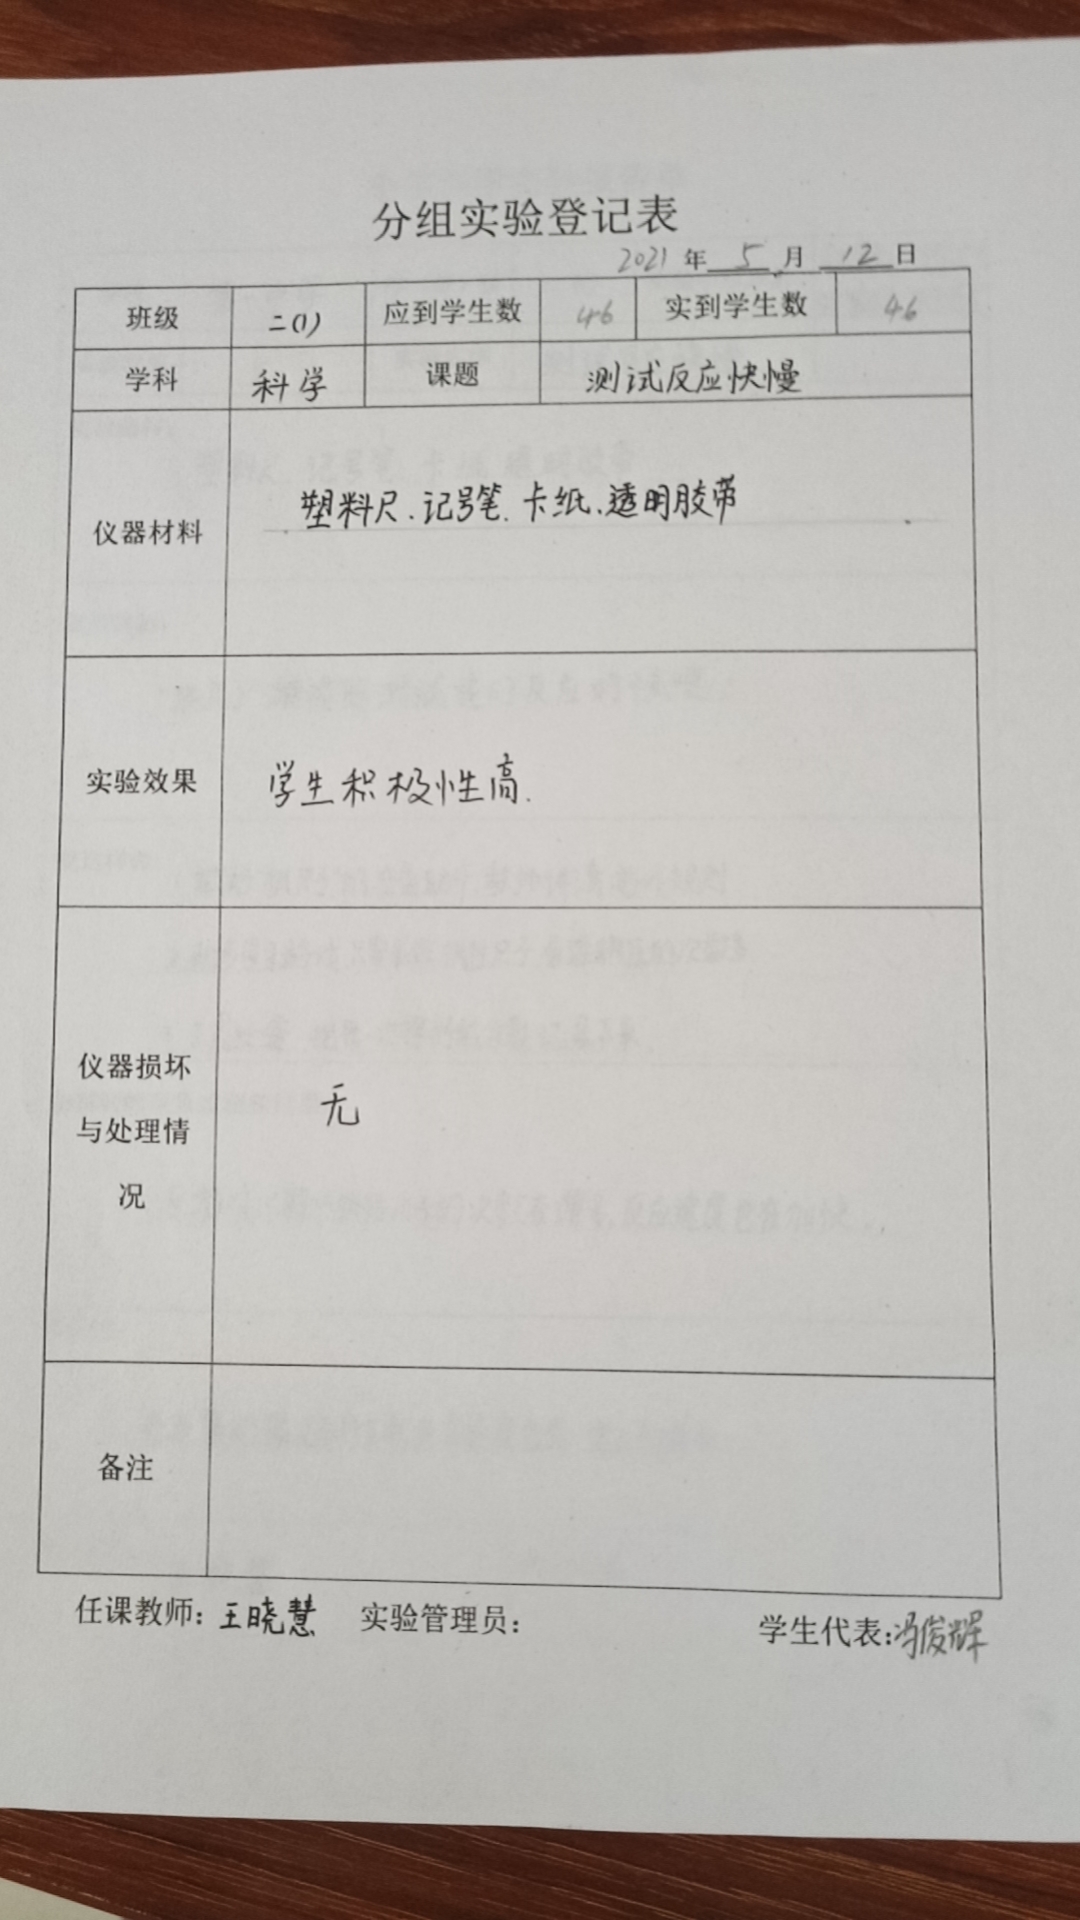 分组实验登记表
2021年 5 月 12 日
班级 二(1) 应到学生数 46 实到学生数 46
学科 科学 课题 测试反应快慢
仪器材料 塑料尺、记号笔、卡纸、透明胶带
实验效果 学生积极性高.
仪器损坏
与处理情 无
况
备注
任课教师：王晓慧 实验管理员： 学生代表：冯俊辉